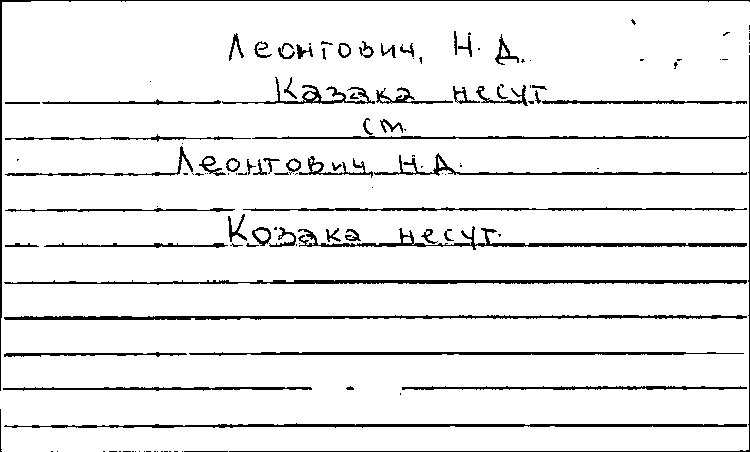 Леонтович, Н. Д.
Казака несут
см.
Леонтович, Н.Д.
Козака несут.